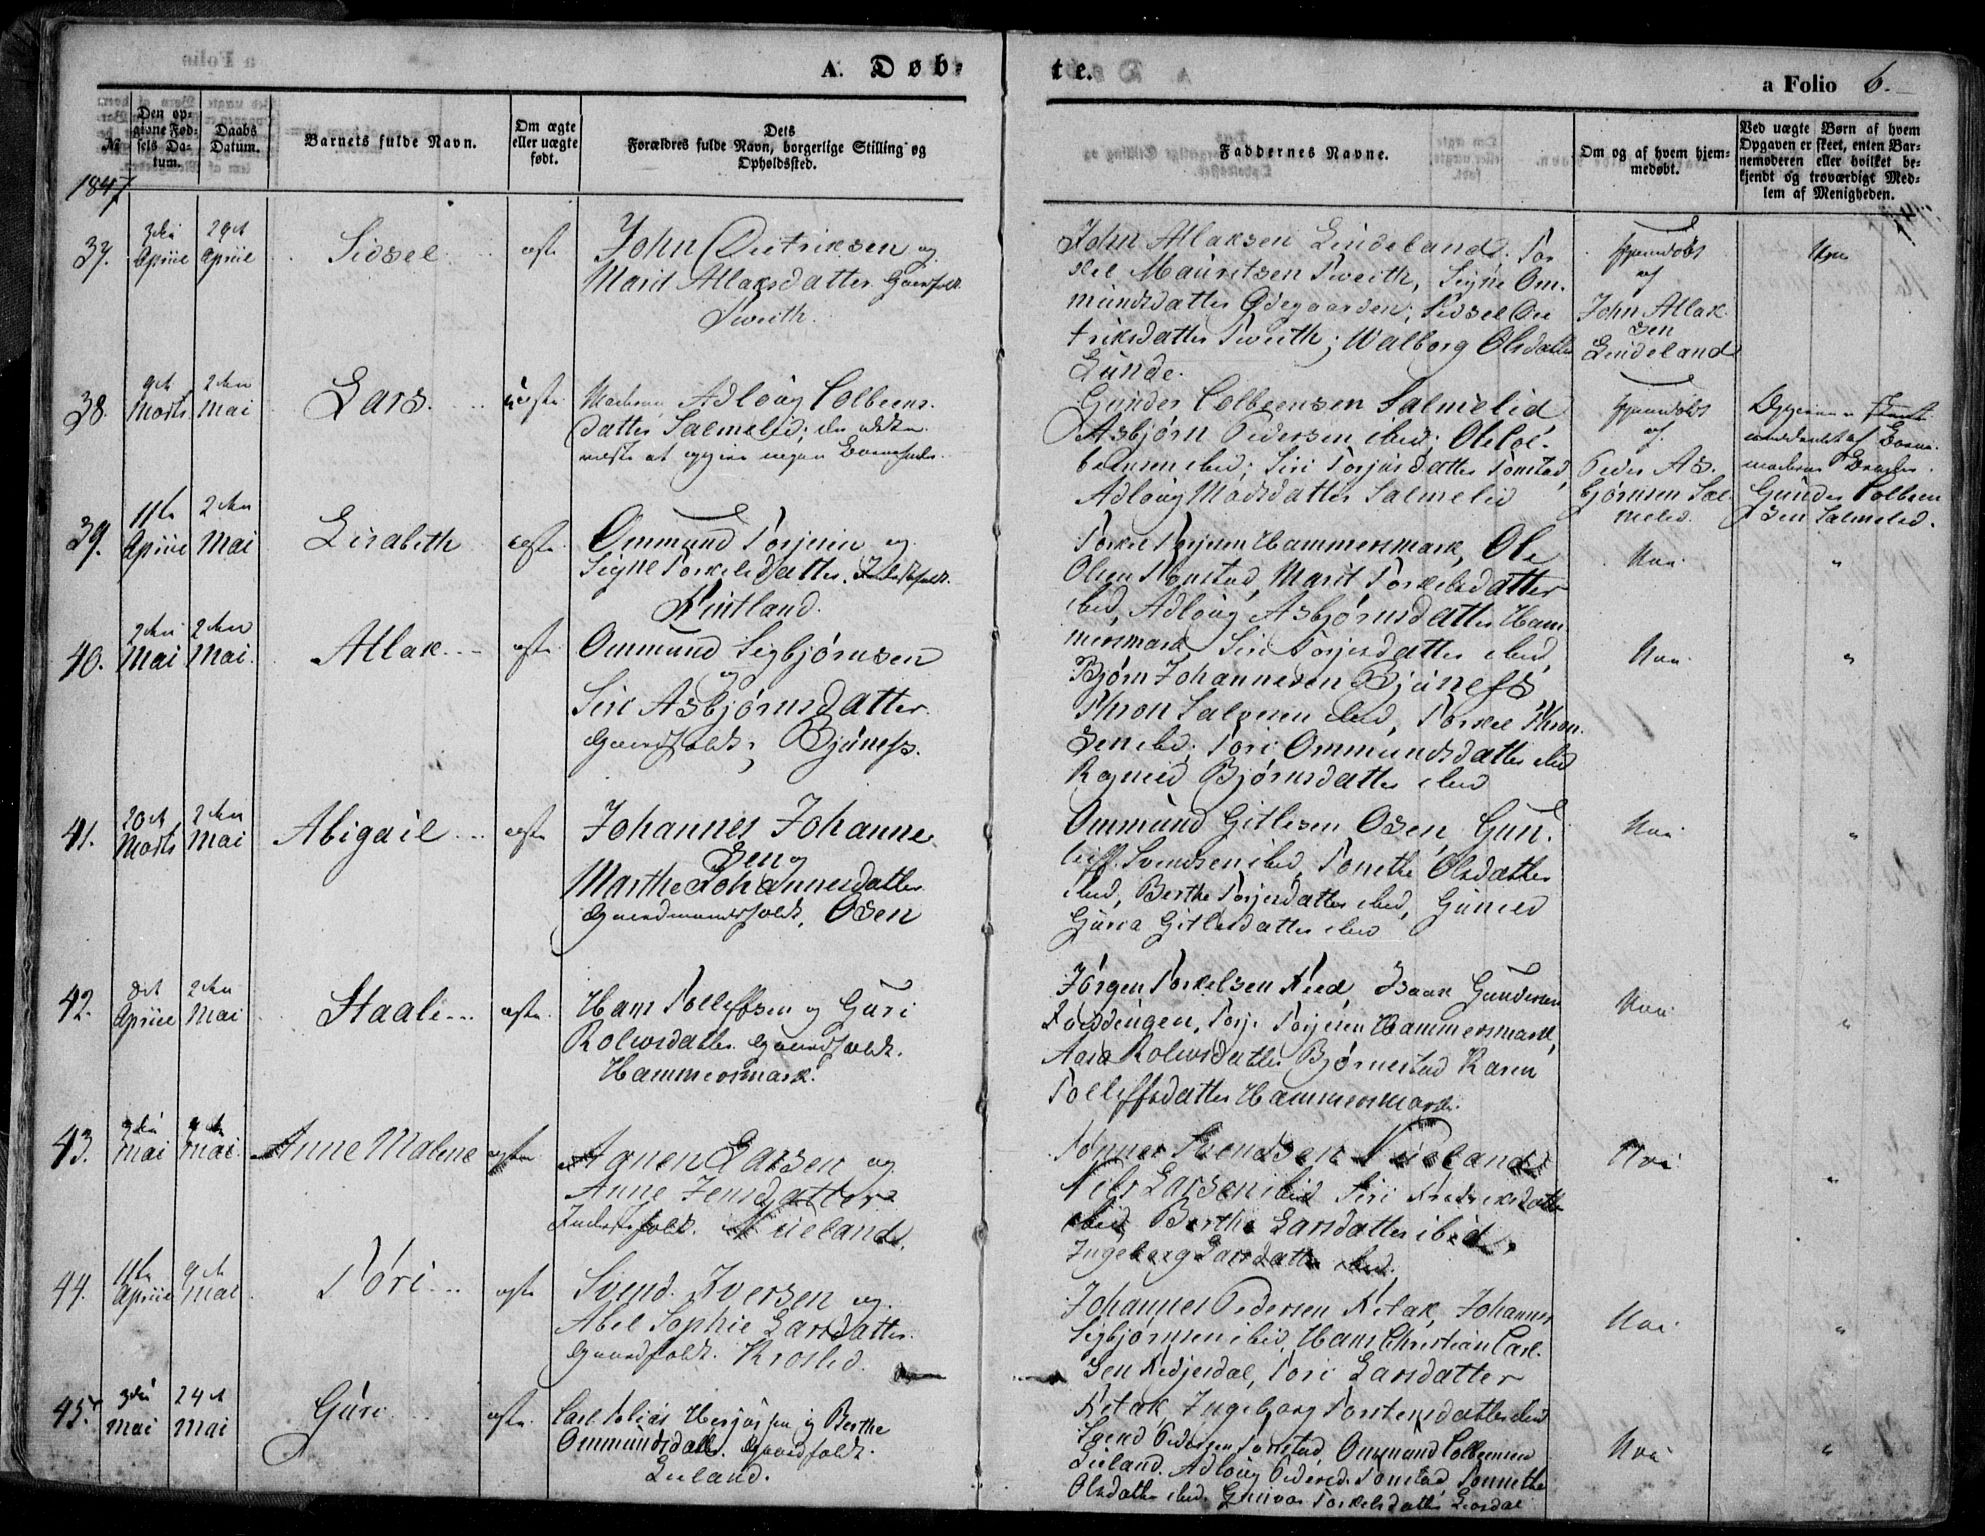 A. Døb-
te.
a Folio 6.
№
Den op-
givne Fød-
sels Da-
tum.
Daabs
Datum.
Barnets fulde Navn.
Om ægte
eller uægte
født.
Dets
Forældres fulde Navn, borgerlige Stilling og
Opholdssted.
Faddernes Navne.
Om og af hvem hjem-
medøbt.
Ved uægte Børn af hvem
Opgaven er skeet, enten Bar-
nemoderen eller hvilket be-
kjendt og troværdigt Med-
lem af Menigheden.
1847
37.
April
April
Sidsel
ægte
John Dietriksen og
Marit Atlaksdatter
Tveith.
John Atlaksen Lindeland, Tor
kel Mauritsen Tveith, Signe Om-
mundsdatter Ødegaarden, Sidsel Die
triksdatter Tveith; Walborg Olsdatter
Lunde.
Hjemdøbt
af
John Atlak
sen
Lindeland
38.
9de
Marts
2den
Mai
Lars.
uægte
Adløug Colbens-
datter Salmelid,
Gunder Colbensen Salmelid
Asbjørn Pedersen ibid; Ole Col-
bensen ibid; Siri Torjusdatter Tonstad,
Adløug Madsdatter Salmelid
Hjemdøbt
af
Peder As-
bjørnsen Sal-
melid.
Gunder Colben
sen Salmelid.
39.
11te
April
2den
Mai
Lisabeth
ægte
Ommund Torjesen og
Signe Torkelsdatter.
Qvintland.
Torkel Torjesen Hammersmark, Ole
Olsen Tonstad, Marit Torkelsdatter
ibid, Adløug Asbjørnsdatter Ham
mersmark, Siri Torjesdatter ibid,
Nei
"
40.
2den
Mai
2den
Mai.
Atlak
ægte
Ommund Sigbjørnsen
og
Siri Asbjørnsdatter.
Gaardfolk; Bjunefs.
Bjørn Johannesen Bjunefs
Thron Salvesen ibid, Torkel Thron
sen ibid; Tori Ommundsdatter ibid
Ragnild Bjørnsdatter ibid
Nei
"
41.
20de
Marts
2den
Mai
Abigail
ægte
Johannes Johanne
sen og
Marthe Johannesdatter
Gaardmandsfolk, Osen
Ommund Gitlesen Osen, Gun-
leiff Svendsen ibid, Tonethe Olsdatter
ibid, Berthe Torjesdatter ibid, Gunild
Guria Gitlesdatter ibid
Nei
"
42.
8de
April
2den
Mai
Staale
ægte
Hans Tolleffsen og Guri
Rolvsdatter Gaardfolk.
Hammersmark.
Jørgen Torkelsen Qvied, Isaak Gundersen
Torje Torjesen Hammersmark,
Aasa Rolvsdatter Bjørnestad Karen
Tolleffsdatter Hammersmark.
Nei
"
43.
Mai
Mai.
Anne Malene
ægte
Aanen Larsen og
Anne Jensdatter
Inderstfolk. Nueland.
Tønnes Svendsen Nueland
Nils Larsen ibid Siri Fredriksdatter
ibid Berthe Larsdatter ibid
Ingeborg Larsdatter ibid.
Nei
"
44.
11te
April
9de
Mai
Tøri
ægte
Svend Iversen og
Abel Sophie Larsdatter.
Gaardfolk. Kroslid.
Johannes Pedersen Netak, Johannes
Sigbjørnsen ibid, Hans Christian Carl-
sen Fidjesdal, Tori Larsdatter
Netak Ingeborg Torstensdatter ibid
Nei
"
45.
3die
Mai
24de
Mai
Guri
ægte
Carl Tobias Hersjøssen og Berthe
Ommundsdatter Gaardfolk.
Lieland.
Svend Pedersen Tonstad, Ommund Colbensen
Lieland. Adløug Pedersd. Tonstad, Tonnethe
Olsdatter ibid. Gunvor Torkelsdatter Liosdal
Nei
"